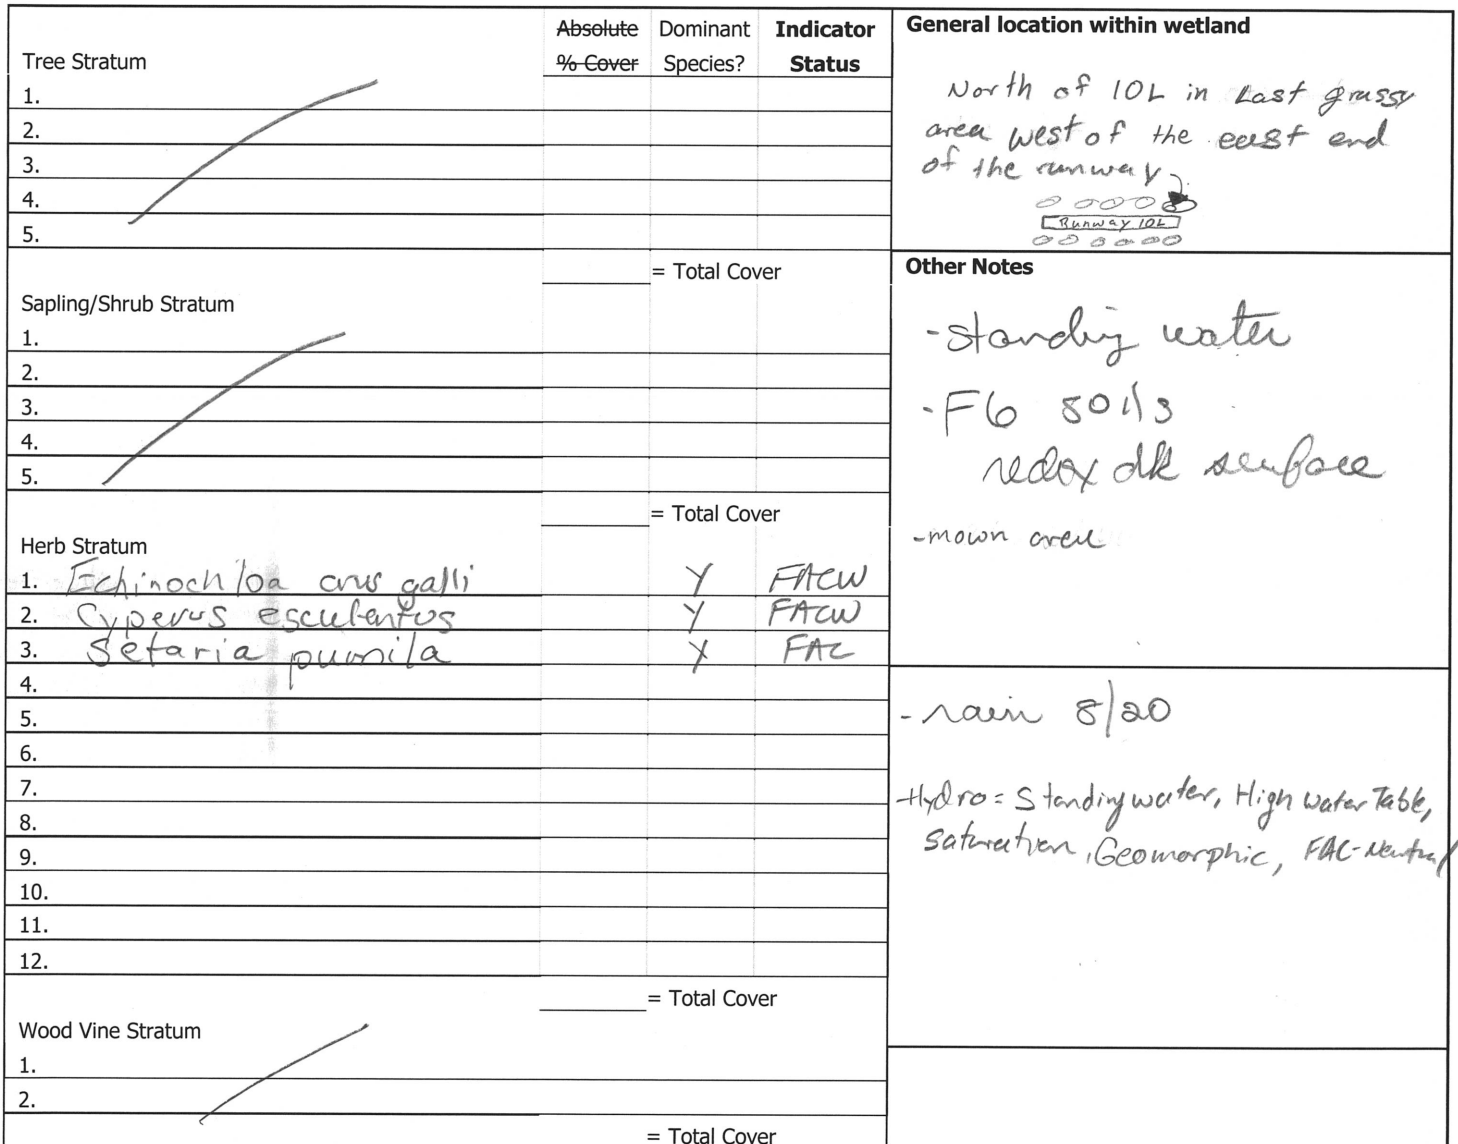 Absolute Dominant Indicator
Tree Stratum % Cover Species? Status
1.
2.
3.
4.
5.
= Total Cover
Sapling/Shrub Stratum
1.
2.
3.
4.
5.
= Total Cover
Herb Stratum
1. Echinochloa crus galli Y FACW
2. Cyperus esculentus Y FACW
3. Setaria pumila Y FAC
4.
5.
6.
7.
8.
9.
10.
11.
12.
= Total Cover
Wood Vine Stratum
1.
2.
= Total Cover
General location within wetland
North of 10L in Last grassy
area west of the east end
of the runway
Runway 10L
Other Notes
- standing water
- F6 soils
redox dk surface
- mown area
- rain 8/20
-Hydro = Standing water, High Water Table,
Saturation, Geomorphic, FAC-Neutral